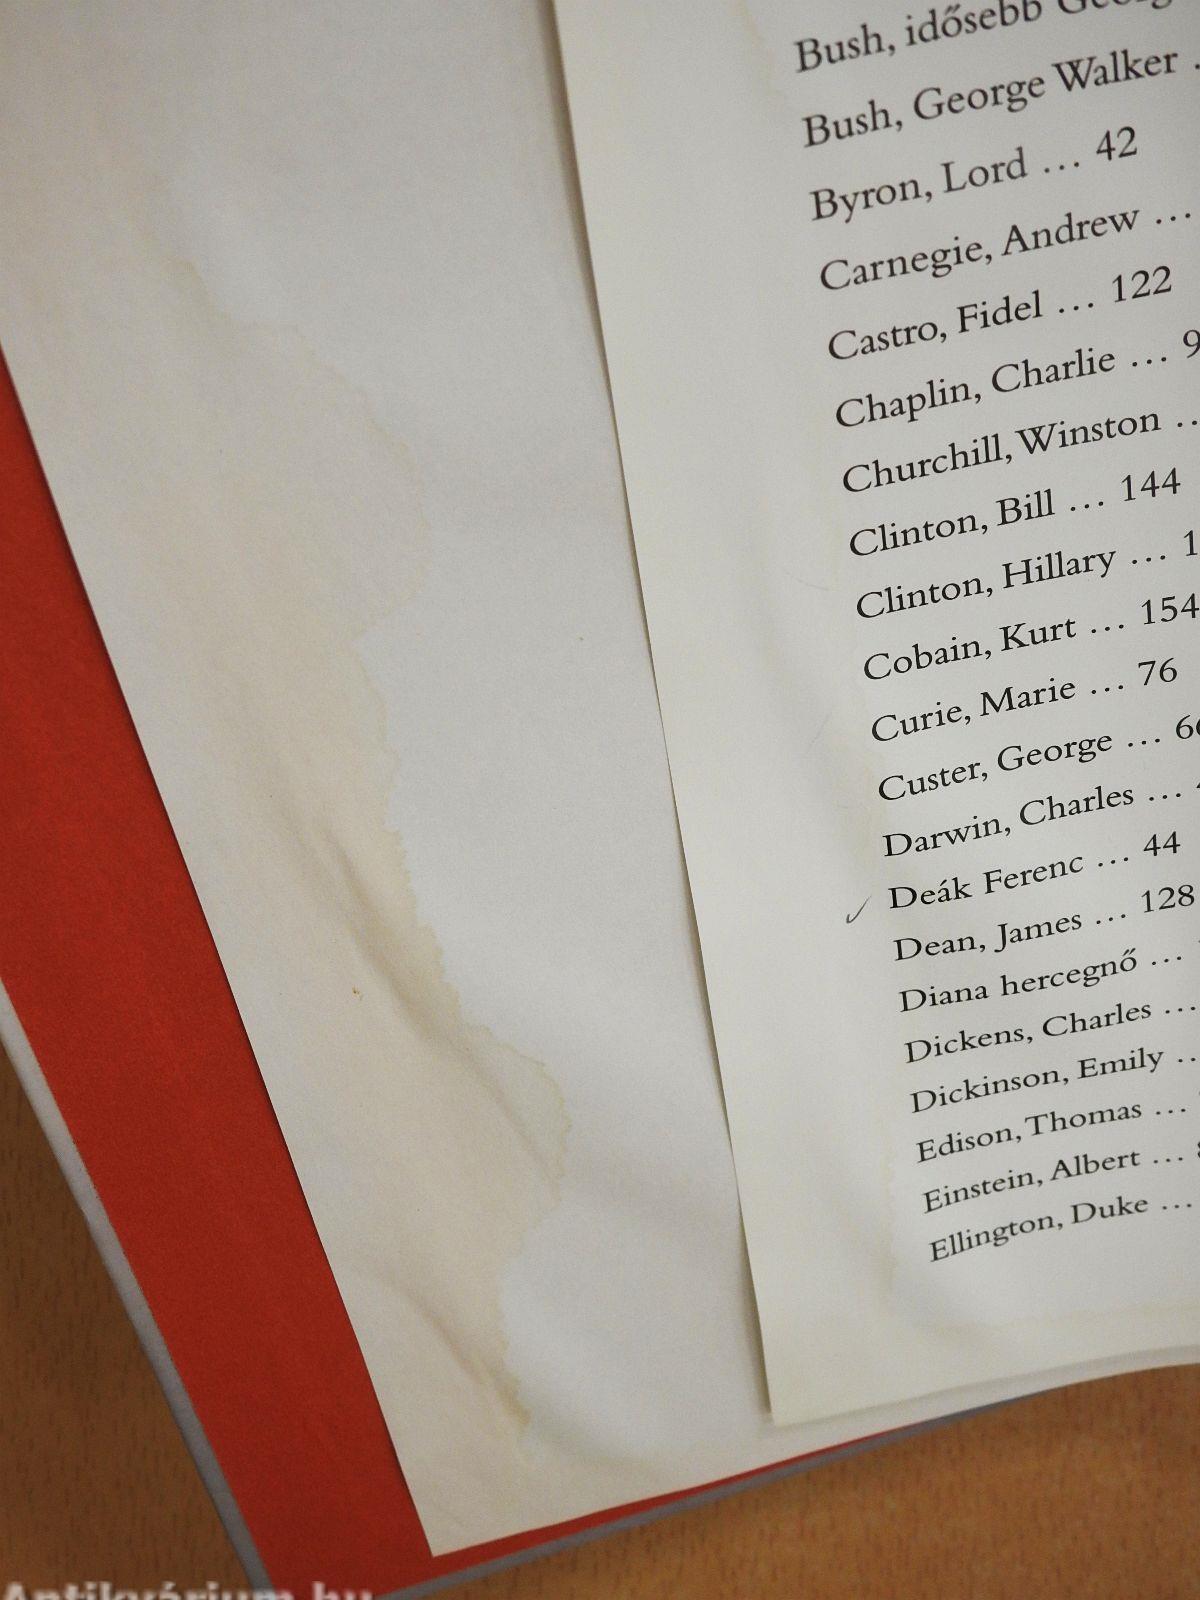 Bush, idősebb George
Bush, George Walker
Byron, Lord ... 42
Carnegie, Andrew ...
Castro, Fidel ... 122
Chaplin, Charlie ... 9
Churchill, Winston ...
Clinton, Bill ... 144
Clinton, Hillary ... 1
Cobain, Kurt ... 154
Curie, Marie ... 76
Custer, George ... 66
Darwin, Charles ...
Deák Ferenc ... 44
Dean, James ... 128
Diana hercegnő ...
Dickens, Charles ...
Dickinson, Emily ...
Edison, Thomas ...
Einstein, Albert ...
Ellington, Duke ...
Antikvárium.hu